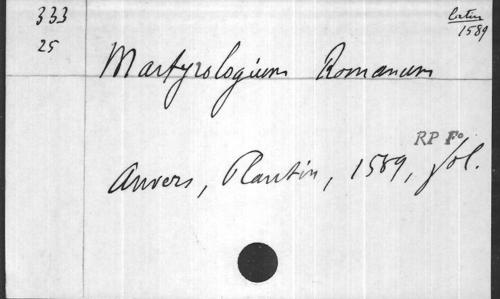 333
25
1589
Martyrologium Romanum
RP Fº
Anvers, Plantin, 1589, fol.